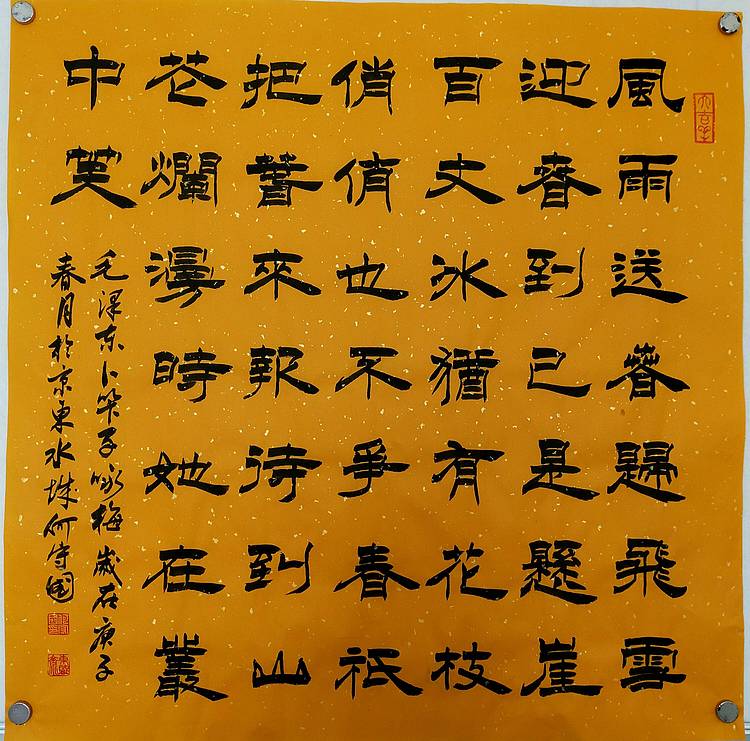 風雨送春歸飛雪
迎春到已是懸崖
百丈冰猶有花枝
俏俏也不爭春祇
把春來報待到山
花爛漫時她在叢
中笑
毛泽东卜算子咏梅歲在庚子
春月於京東水城何守国